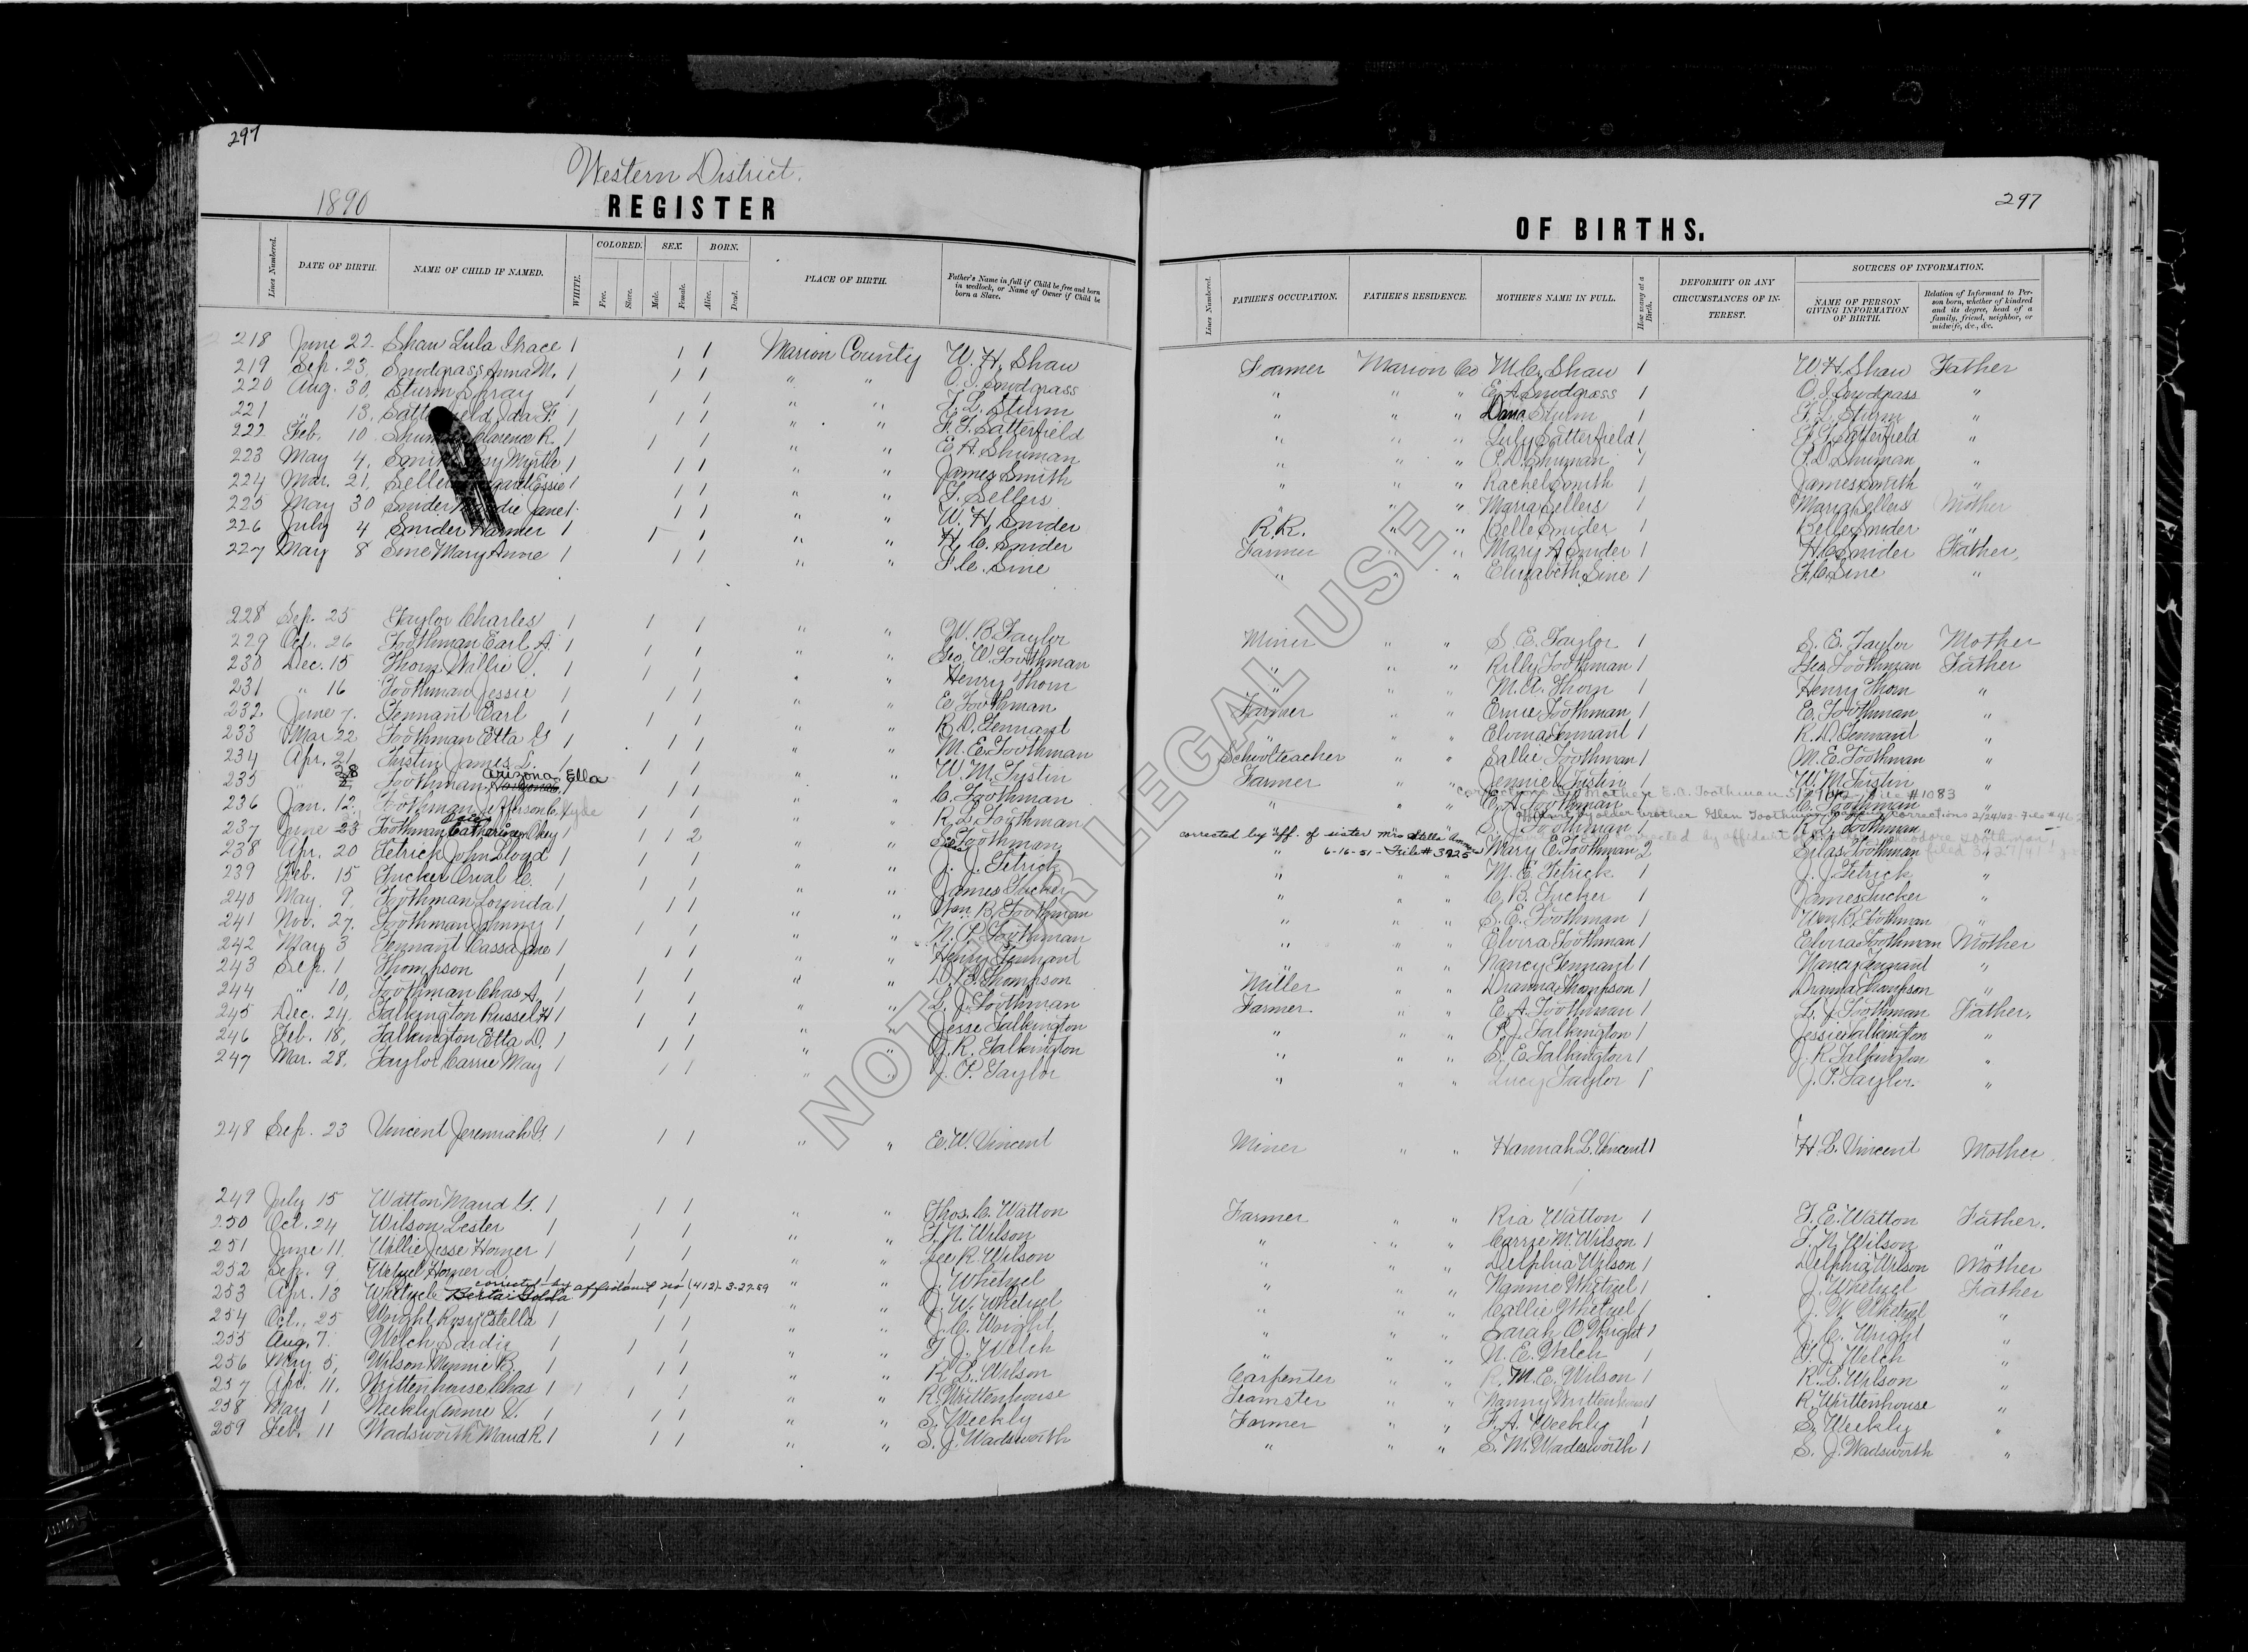 297
Western District.
1890
REGISTER
Lines Numbered.
DATE OF BIRTH.
NAME OF CHILD IF NAMED.
WHITE.
COLORED.
Free.
Slave.
SEX.
Male.
Female.
BORN.
Alive.
Dead.
PLACE OF BIRTH.
Father's Name in full if Child be free and born
in wedlock, or Name of Owner if Child be
born a Slave.
218 June 22 Shaw Lula Grace 1 1 1 Marion County W. H. Shaw
219 Sep. 23, Snodgrass Anna M. 1 1 1 " " O. J. Snodgrass
220 Aug. 30, Sturm S. Gray 1 1 1 " " F. L. Sturm
221 " 13, Ida F. 1 1 1 " " F. F. Satterfield
222 Feb. 10 Clarence R. 1 1 1 " " E. A. Shuman
223 May 4, Myrtle 1 1 1 " " James Smith
224 Mar. 21, Essie 1 1 1 " " F. Sellers
225 May 30 Snider Janet 1 1 " " W. H. Snider
226 July 4 Snider Harmer 1 1 1 " " H. C. Snider
227 May 8 Sine Mary Anne 1 1 1 " " F. C. Sine
228 Sep. 25 Taylor Charles 1 1 1 " " W. B. Taylor
229 Oct. 26 Toothman Earl A. 1 1 1 " " Geo. W. Toothman
230 Dec. 15 Thorn Willie V. 1 1 1 " " Henry Thorn
231 " 16 Toothman Jessie 1 1 1 " " E. Toothman
232 June 7. Tennant Earl 1 1 1 " " R. D. Tennant
233 Mar 22 Toothman Etta G 1 1 1 " " M. E. Toothman
234 Apr. 21 Tustin James L. 1 1 1 " " W. M. Tustin
235 " 28 Toothman Arizona Ella 1 1 1 " " C. Toothman
236 Jan. 12, Toothman Jefferson C. Clyde 1 1 " " R. L. Toothman
237 June 23 Toothman Catherine Okey 1 1 1 2 " " S. Toothman
238 Apr. 20 Tetrick John Lloyd 1 1 1 " " J. J. Tetrick
239 Feb. 15 Tucker Orval C. 1 1 1 " " James Tucker
240 May. 9, Toothman Lourinda 1 1 1 " " Wm. B. Toothman
241 Nov. 27, Toothman Johnny 1 1 1 " " N. P. Toothman
242 May 3 Tennant Cassa Jane 1 1 1 " " Henry Tennant
243 Sep. 1 Thompson 1 1 1 " " D. B. Thompson
244 " 10, Toothman Chas A. 1 1 1 " " L. J. Toothman
245 Dec. 24, Talkington Russel H 1 1 1 " " Jesse Talkington
246 Feb. 18, Talkington Etta D. 1 1 1 " " J. R. Talkington
247 Mar. 28, Taylor Carrie May 1 1 1 " " J. P. Taylor
248 Sep. 23 Vincent Jeremiah G. 1 1 1 " " E. W. Vincent
249 July 15 Watton Maud G. 1 1 1 " " Thos. C. Watton
250 Oct. 24 Wilson Lester 1 1 1 " " F. N. Wilson
251 June 11 Willie Jesse Homer 1 1 1 " " Lee R. Wilson
252 Sep. 9 Wetzel Homer D. 1 1 1 " " J. Whetzel
corrected by affidavit no (412) 3-27-59
253 Apr. 13 Whetzel Berta Golda 1 1 " " J. W. Whetzel
254 Oct. 25 Wright Rosy Estella 1 1 1 " " J. C. Wright
255 Aug. 7. Welch Sardie 1 1 1 " " T. J. Welch
256 May 5, Wilson Minnie B. 1 1 1 " " R. L. Wilson
257 Apr. 11, Writtenhouse Chas 1 1 1 " " R. Writtenhouse
258 May 1 Weekly Annie V. 1 1 1 " " S. Weekly
259 Feb. 11 Wadsworth Maud R. 1 1 1 " " S. J. Wadsworth
297
OF BIRTHS.
Lines Numbered.
FATHER'S OCCUPATION.
FATHER'S RESIDENCE.
MOTHER'S NAME IN FULL.
How many at a
Birth.
DEFORMITY OR ANY
CIRCUMSTANCES OF IN-
TEREST.
SOURCES OF INFORMATION.
NAME OF PERSON
GIVING INFORMATION
OF BIRTH.
Relation of Informant to Per-
son born, whether of kindred
and its degree, head of a
family, friend, neighbor, or
midwife, &c., &c.
Farmer Marion Co M. C. Shaw 1 W. H. Shaw Father
" " " E. A. Snodgrass 1 O. J. Snodgrass "
" " " Dana Sturm 1 F. L. Sturm "
" " " Luly Satterfield 1 F. F. Satterfield "
" " " P. D. Shuman 1 P. D. Shuman "
" " " Rachel Smith 1 James Smith "
" " " Maria Sellers 1 Maria Sellers Mother
R.R. " " Belle Snider 1 Belle Snider "
Farmer " " Mary A Snider 1 H. C. Snider Father,
" " " Elizabeth Sine 1 F. C. Sine "
Miner " " S. E. Taylor 1 S. E. Taylor Mother
" " " Rilly Toothman 1 Geo. Toothman Father
" " " M. A. Thorn 1 Henry Thorn "
Farmer " " Ernie Toothman 1 E. Toothman "
" " " Elvina Tennant 1 R. D. Tennant "
Schoolteacher " " Sallie Toothman 1 M. E. Toothman "
Farmer " " Jennie Tustin 1 W. M. Tustin "
Mother E. A. Toothman #1083
" " " E. A. Toothman 1 C. Toothman "
older brother Glen Toothman corrections 2/24/42
S. J. Toothman R. L. Toothman "
corrected by aff. of sister Mrs Stella
6-16-51 - File # 3925 Mary E. Toothman 2 Silas Toothman "
" " " M. E. Tetrick 1 J. J. Tetrick "
" " " C. B. Tucker 1 James Tucker "
" " " S. E. Toothman 1 Wm B. Toothman "
" " " Elvira Toothman 1 Elvira Toothman Mother
" " " Nancy Tennant 1 Nancy Tennant "
Miller " " Drama Thompson 1 Drama Thompson "
Farmer " " E. A. Toothman 1 L. J. Toothman Father.
" " " P. J. Talkington 1 Jessie Talkington "
" " " S. E. Talkington 1 J. R. Talkington "
" " " Lucy Taylor 1 J. P. Taylor. "
Miner " " Hannah L. Vincent 1 H. L. Vincent Mother
Farmer " " Ria Watton 1 T. E. Watton Father.
" " " Carrie M. Wilson 1 F. N. Wilson "
" " " Delphia Wilson 1 Delphia Wilson Mother
" " " Nannie Whetzel 1 J. Whetzel Father
" " " Callie Whetzel 1 J. W. Whetzel "
" " " Sarah O. Wright 1 J. C. Wright "
" " " N. E. Welch 1 T. J. Welch "
Carpenter " " R. M. E. Wilson 1 R. L. Wilson "
Teamster " " Nanny Writtenhouse 1 R. Writtenhouse "
Farmer " " F. A. Weekly 1 S. Weekly "
" " " S. M. Wadesworth 1 S. J. Wadsworth "
NOT FOR LEGAL USE